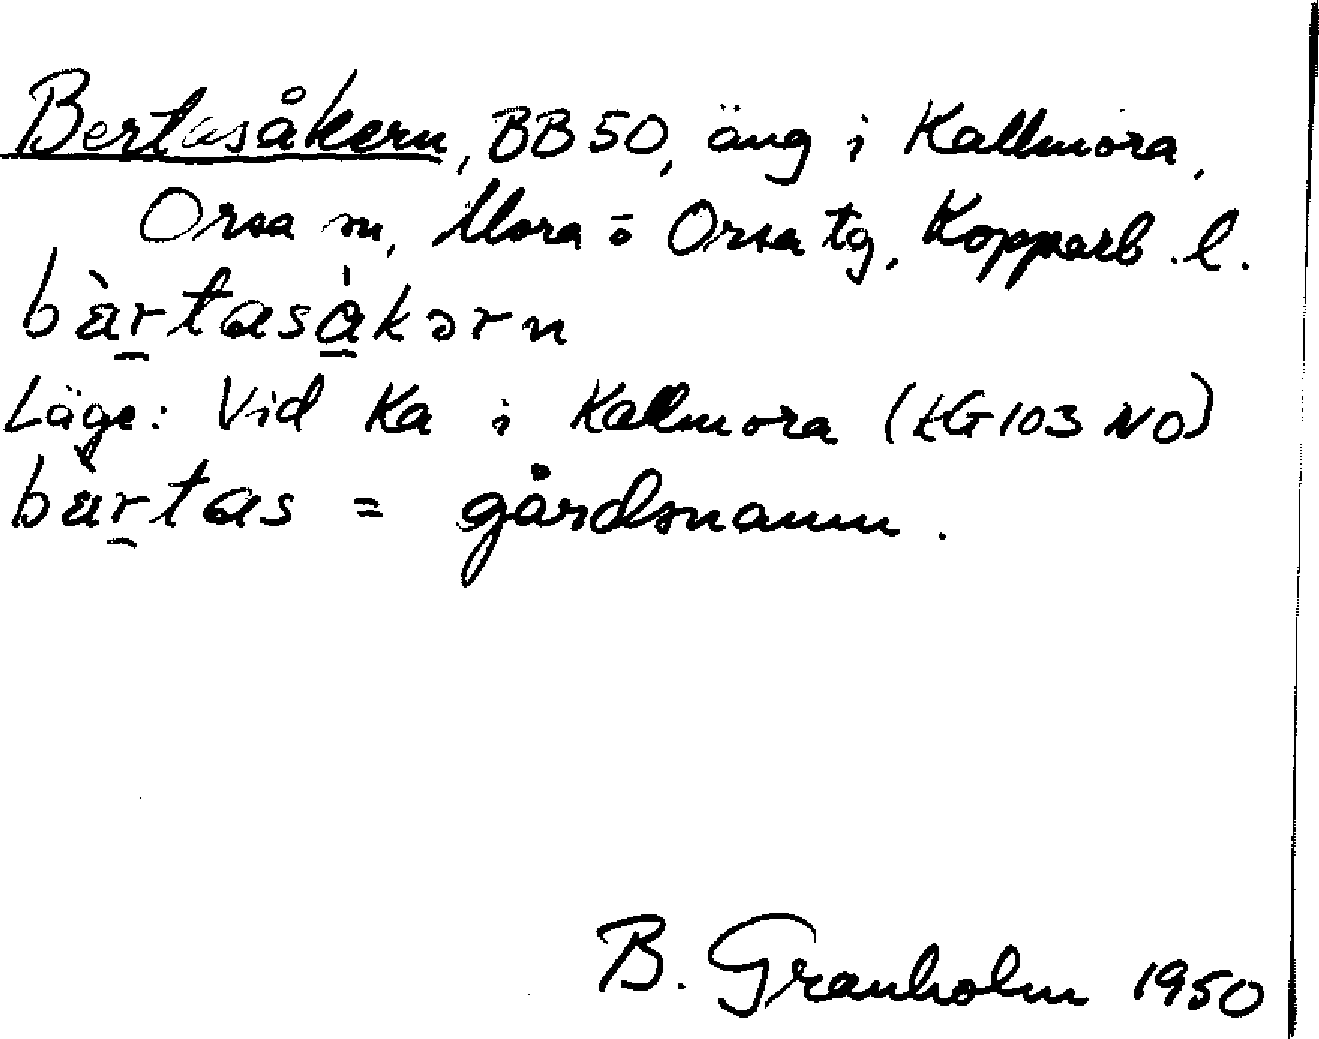 Bertasåkern, BB50, äng i Kallmora,
Orsa sn, Mora o Orsa tg, Kopparb. l.
bàrtasàkərn
Läge: Vid Ka i Kallmora (EG103 NO)
bàrtas = gårdsnamn.
B. Granholm 1950